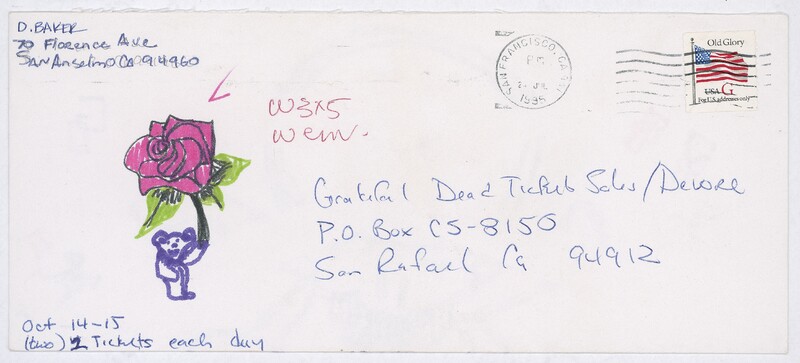 D. BAKER
70 Florence Ave
San Anselmo CA 914960
SAN FRANCISCO, CA
PM
1995
Old Glory
USA G
For U.S. addresses only
W3X5
wem.
Grateful Dead Ticket Sales/
P.O. Box CS-8150
San Rafael Ca 94912
Oct 14-15
(two) 2 Tickets each day